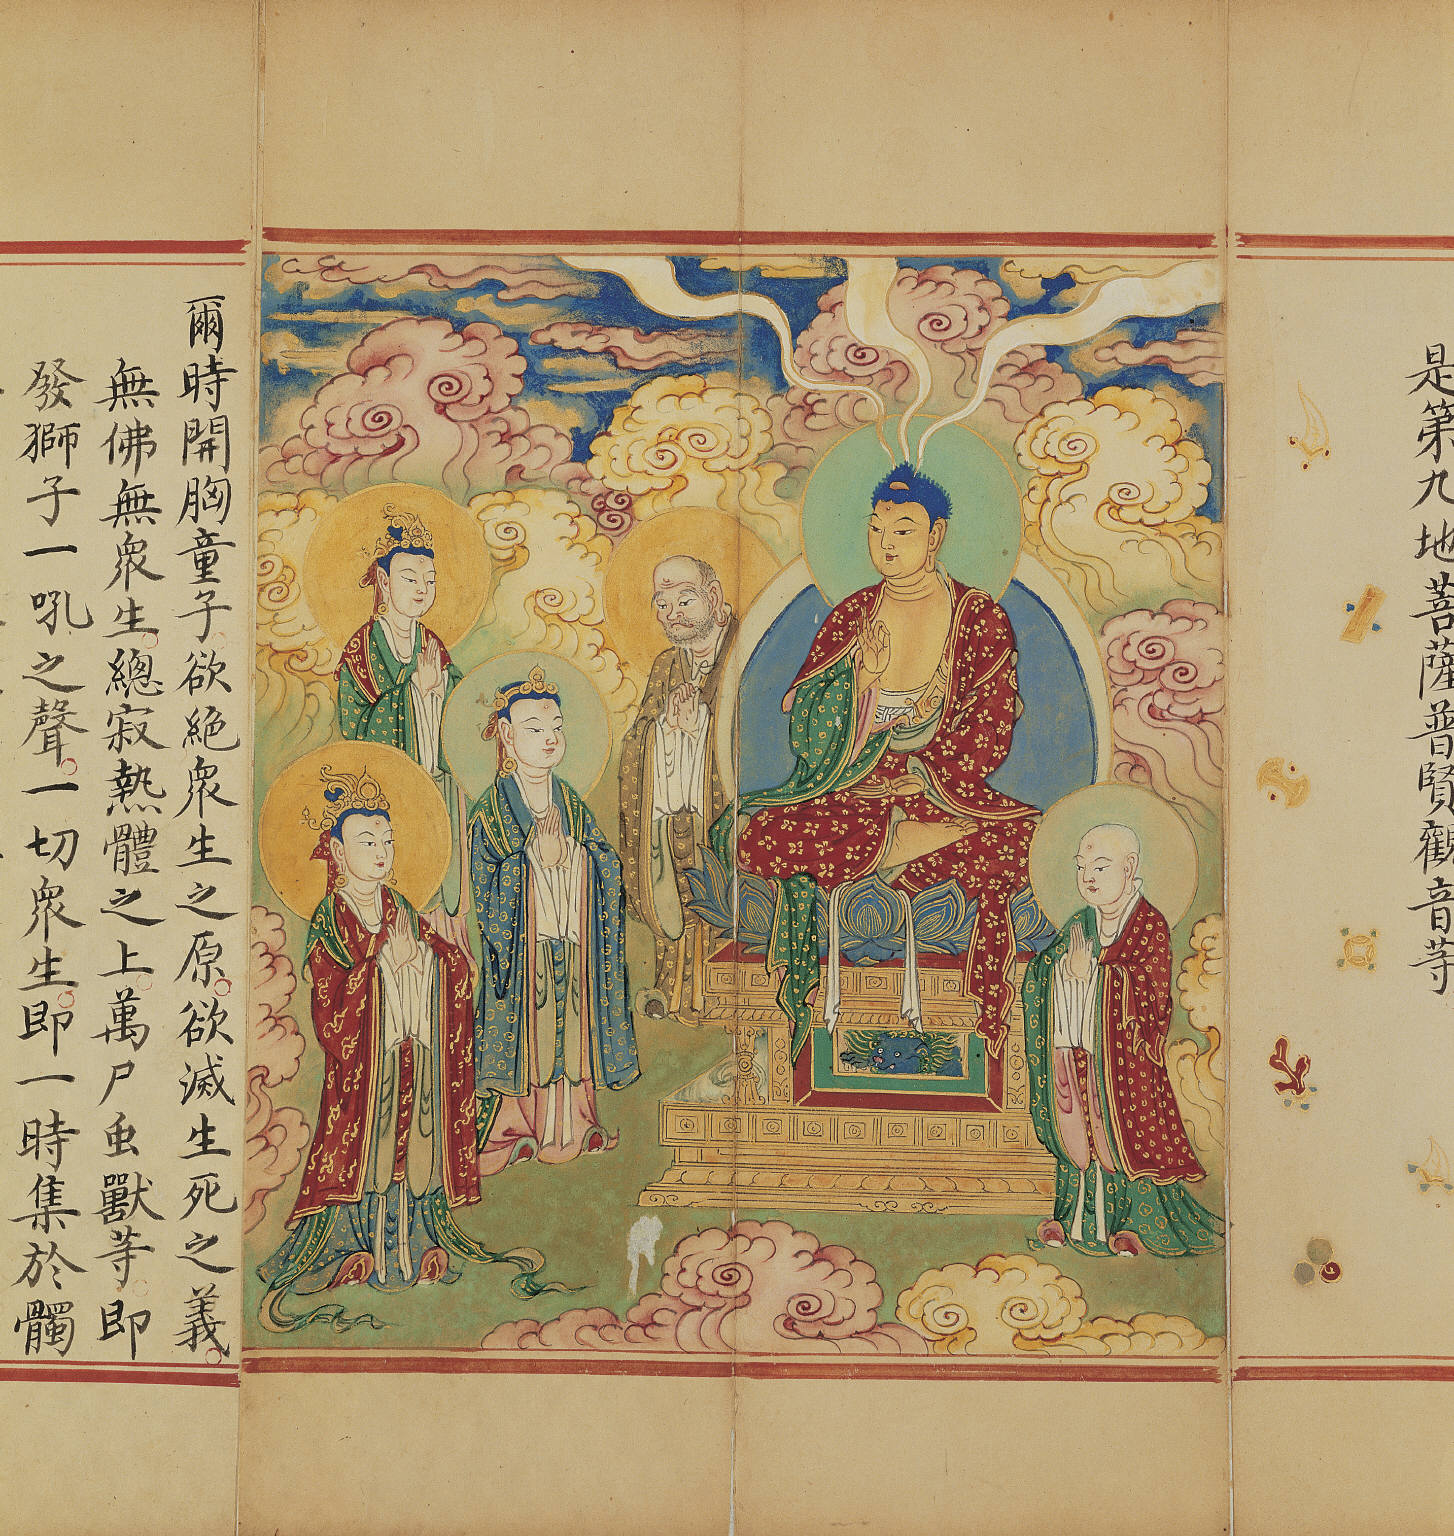 是第九地菩薩普賢觀音等
爾時開胸童子欲絶衆生之原欲滅生死之義
無佛無衆生總寂熱體之上萬尸虫獸等即
發獅子一吼之聲一切衆生即一時集於髑